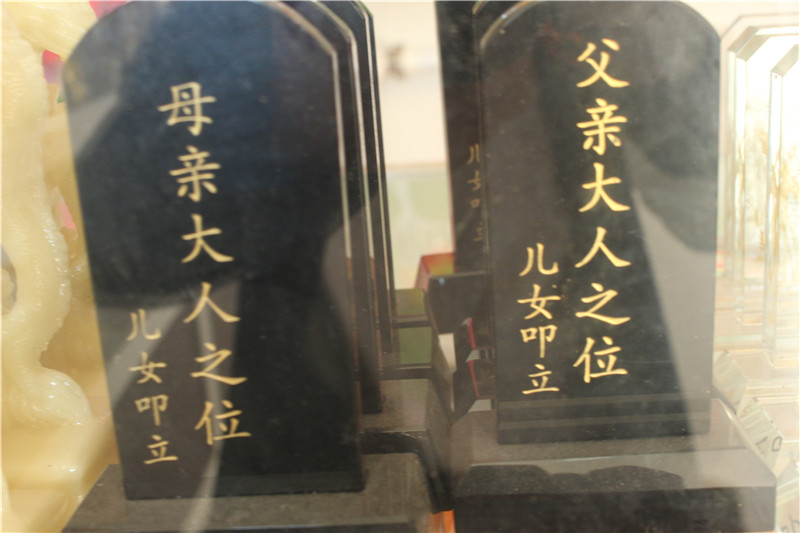 母亲大人之位
儿女叩立
父亲大人之位
儿女叩立
儿女叩立